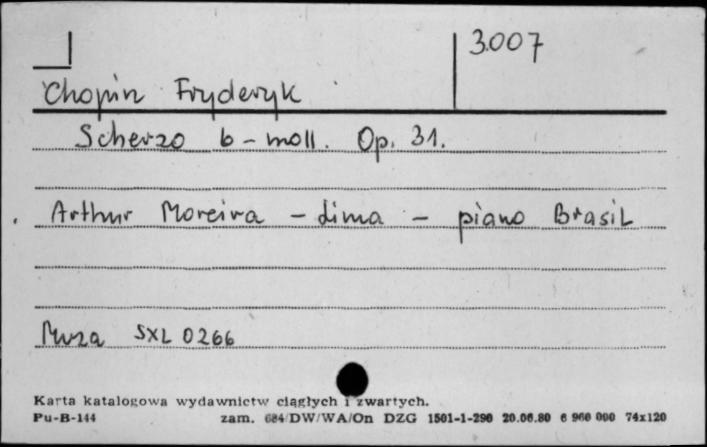 3.007
Chopin Fryderyk
Scherzo b-moll. Op. 31.
Arthur Moreira - Lima - piano Brasil
Muza SXL 0266
Karta katalogowa wydawnictw ciągłych i zwartych.
Pu-B-144 zam. 684/DW/WA/On DZG 1501-1-290 20.06.80 6 960 000 74x120